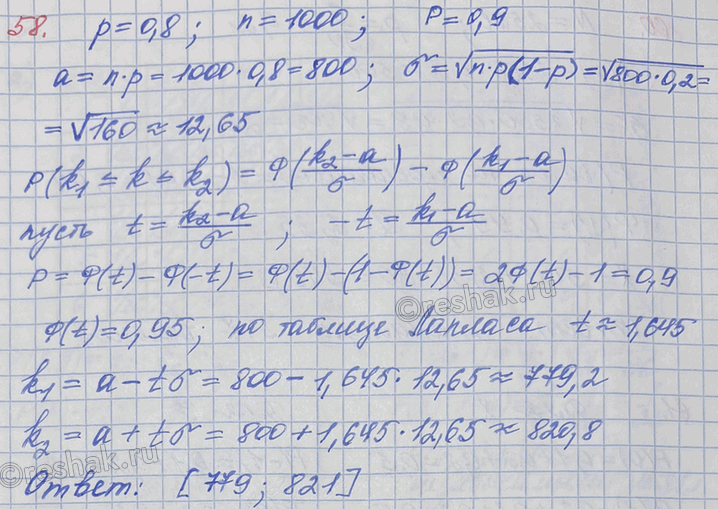 58. p=0,8; n=1000; P=0,9
a=n·p=1000·0,8=800; σ=√(n·p(1-p))=√(800·0,2)=
=√160≈12,65
P(k₁≤k≤k₂)=Φ((k₂-a)/σ)-Φ((k₁-a)/σ)
пусть t=(k₂-a)/σ; -t=(k₁-a)/σ
P=Φ(t)-Φ(-t)=Φ(t)-(1-Φ(t))=2Φ(t)-1=0,9
Φ(t)=0,95; по таблице Лапласа t≈1,645
k₁=a-tσ=800-1,645·12,65≈779,2
k₂=a+tσ=800+1,645·12,65≈820,8
Ответ: [779; 821]
©reshak.ru
©reshak.ru